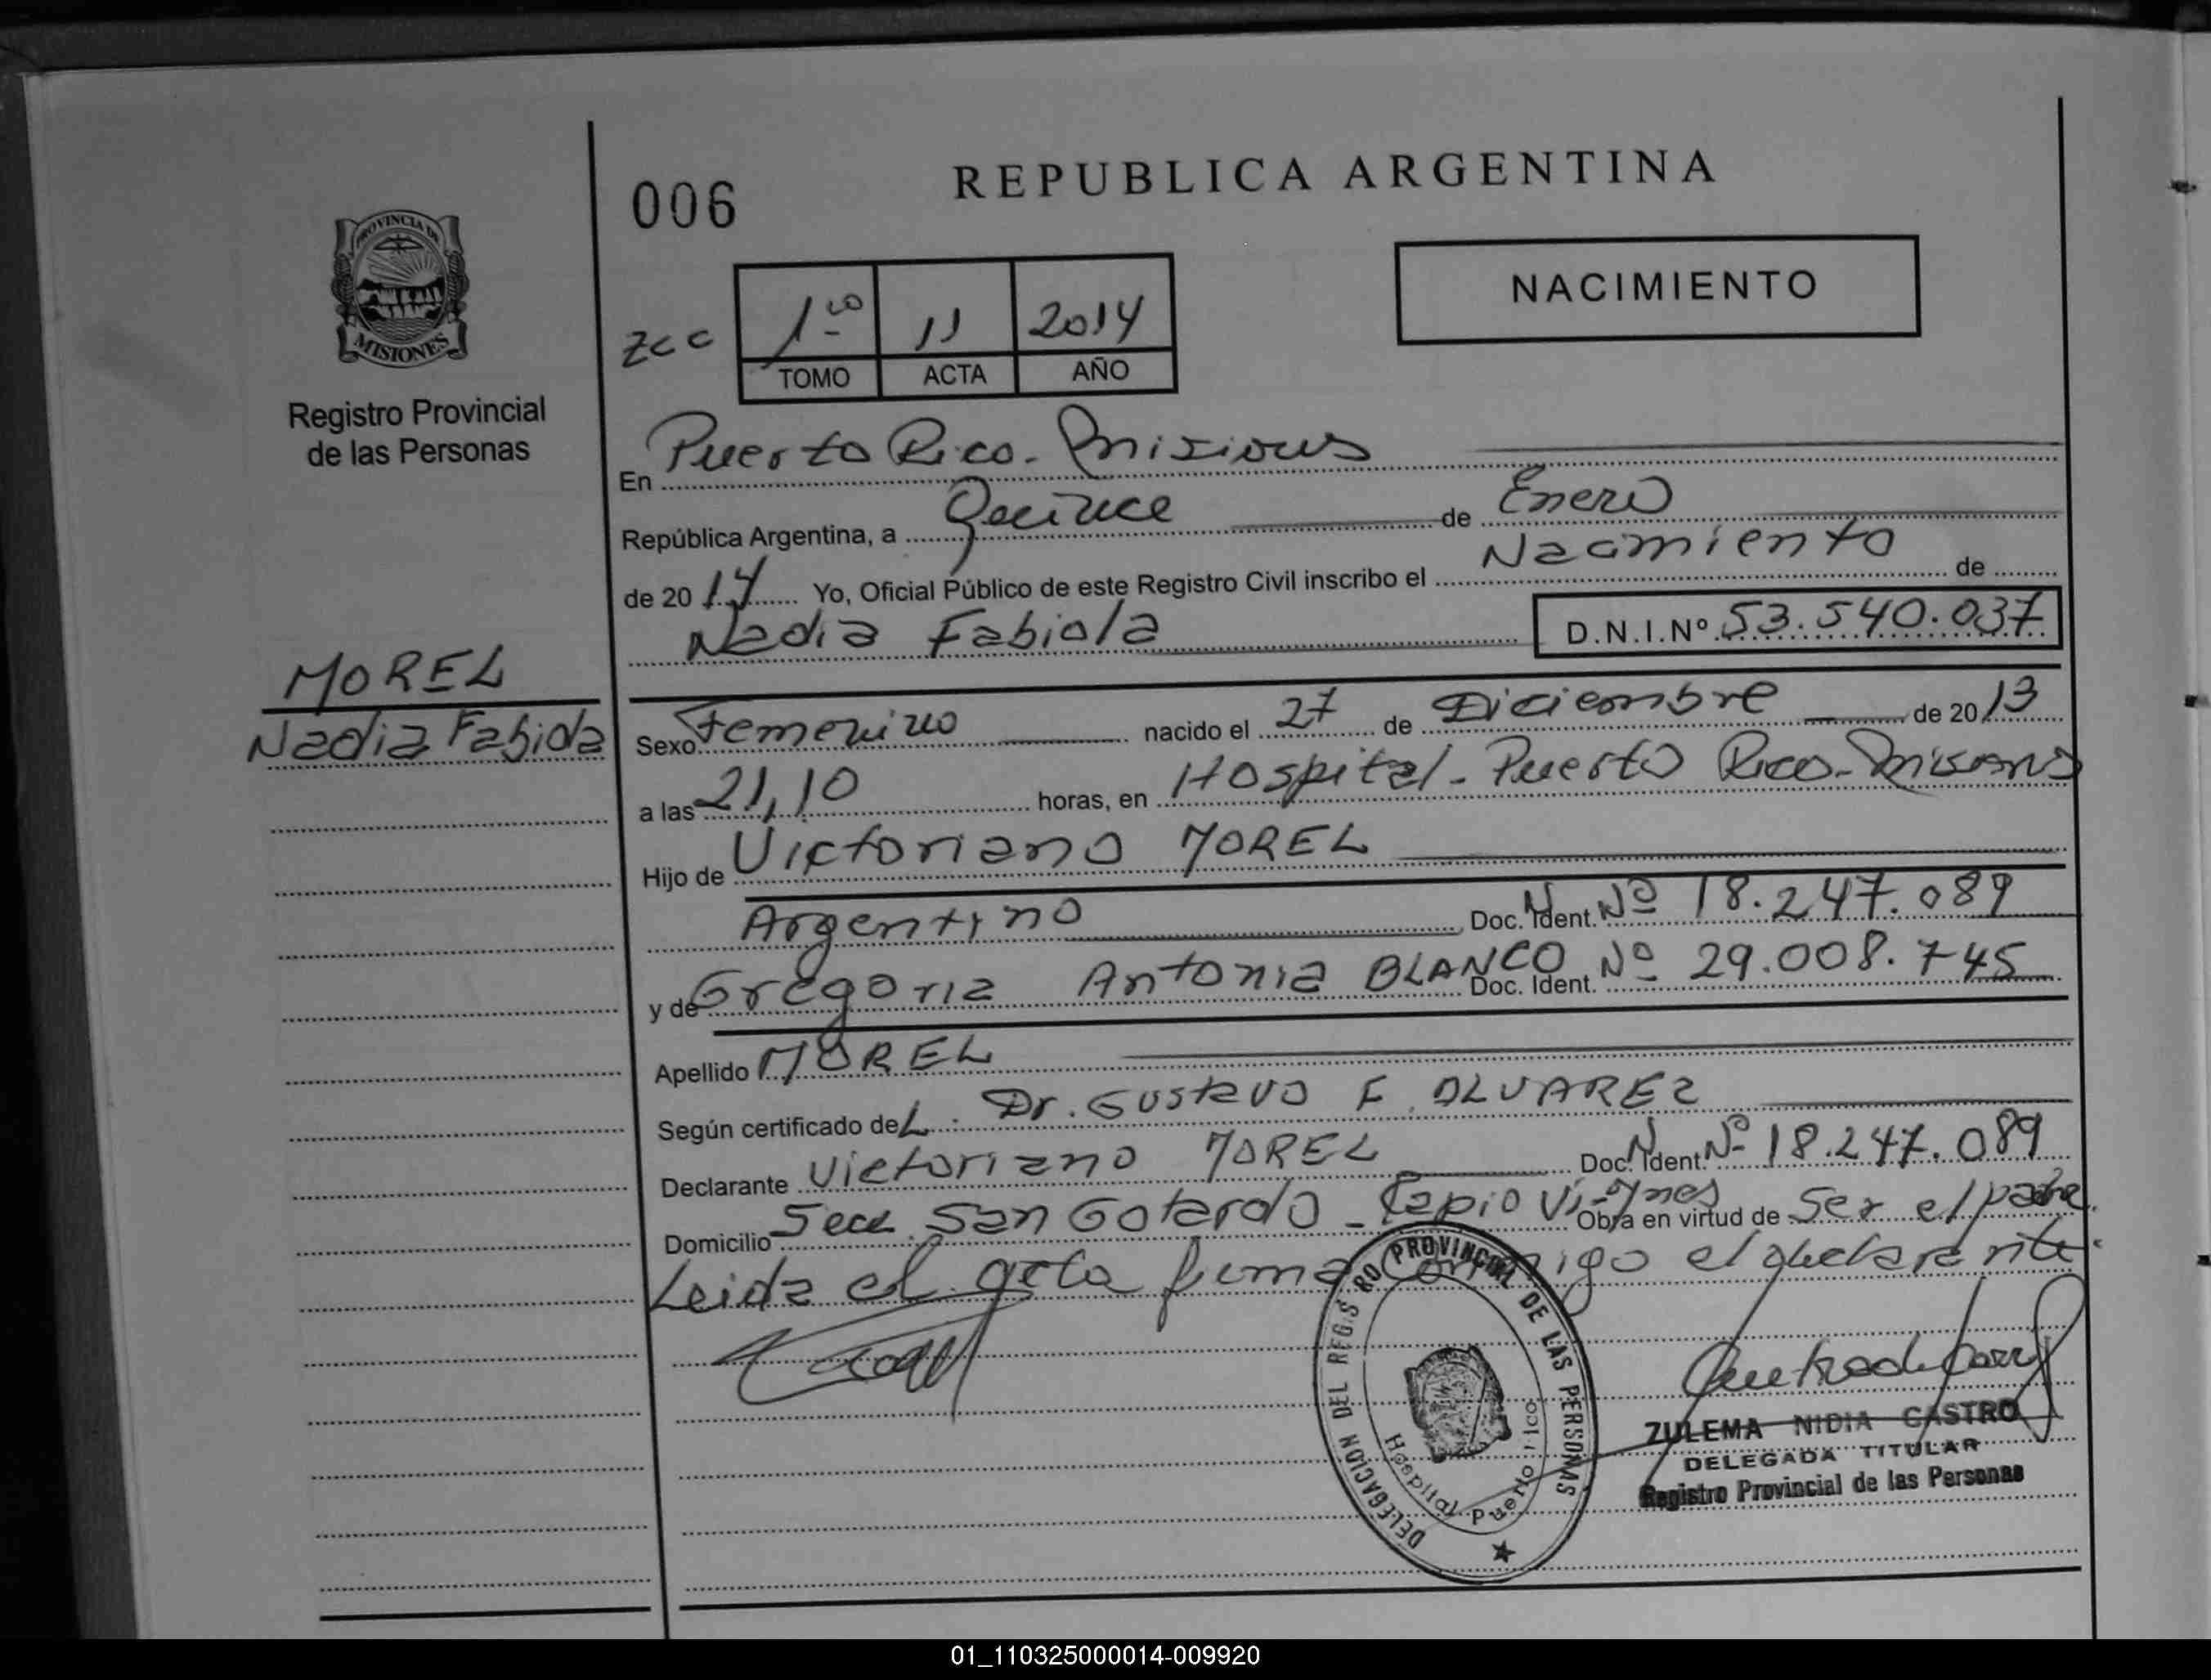 REPUBLICA ARGENTINA
006
NACIMIENTO
PROVINCIA DE
MISIONES
Registro Provincial
de las Personas
zcc 1ro 11 2014
TOMO ACTA AÑO
En Puerto Rico - Misiones
República Argentina, a Quince de Enero
de 2014 Yo, Oficial Público de este Registro Civil inscribo el Nacimiento de
Nadia Fabiola D.N.I.Nº 53.540.037
MOREL
Nadia Fabiola
Sexo Femenino nacido el 27 de Diciembre de 2013
a las 21,10 horas, en Hospital - Puerto Rico - Misiones
Hijo de Victoriano MOREL
Argentino Doc. Ident. Nº 18.247.089
y de Gregoria Antonia BLANCO Doc. Ident. Nº 29.008.745
Apellido MOREL
Según certificado del: Dr. Gustavo F. ALVAREZ
Declarante Victoriano MOREL Doc. Ident. Nº 18.247.089
Domicilio Secc. San Gotardo - Capioví - Mnes Obra en virtud de Ser el padre.
Leida el acta firma conmigo el declarante.
DELEGACION DEL REGISRO PROVINCIAL DE LAS PERSONAS
Hospital Puerto Rico
ZULEMA NIDIA CASTRO
DELEGADA TITULAR
Registro Provincial de las Personas
01_110325000014-009920